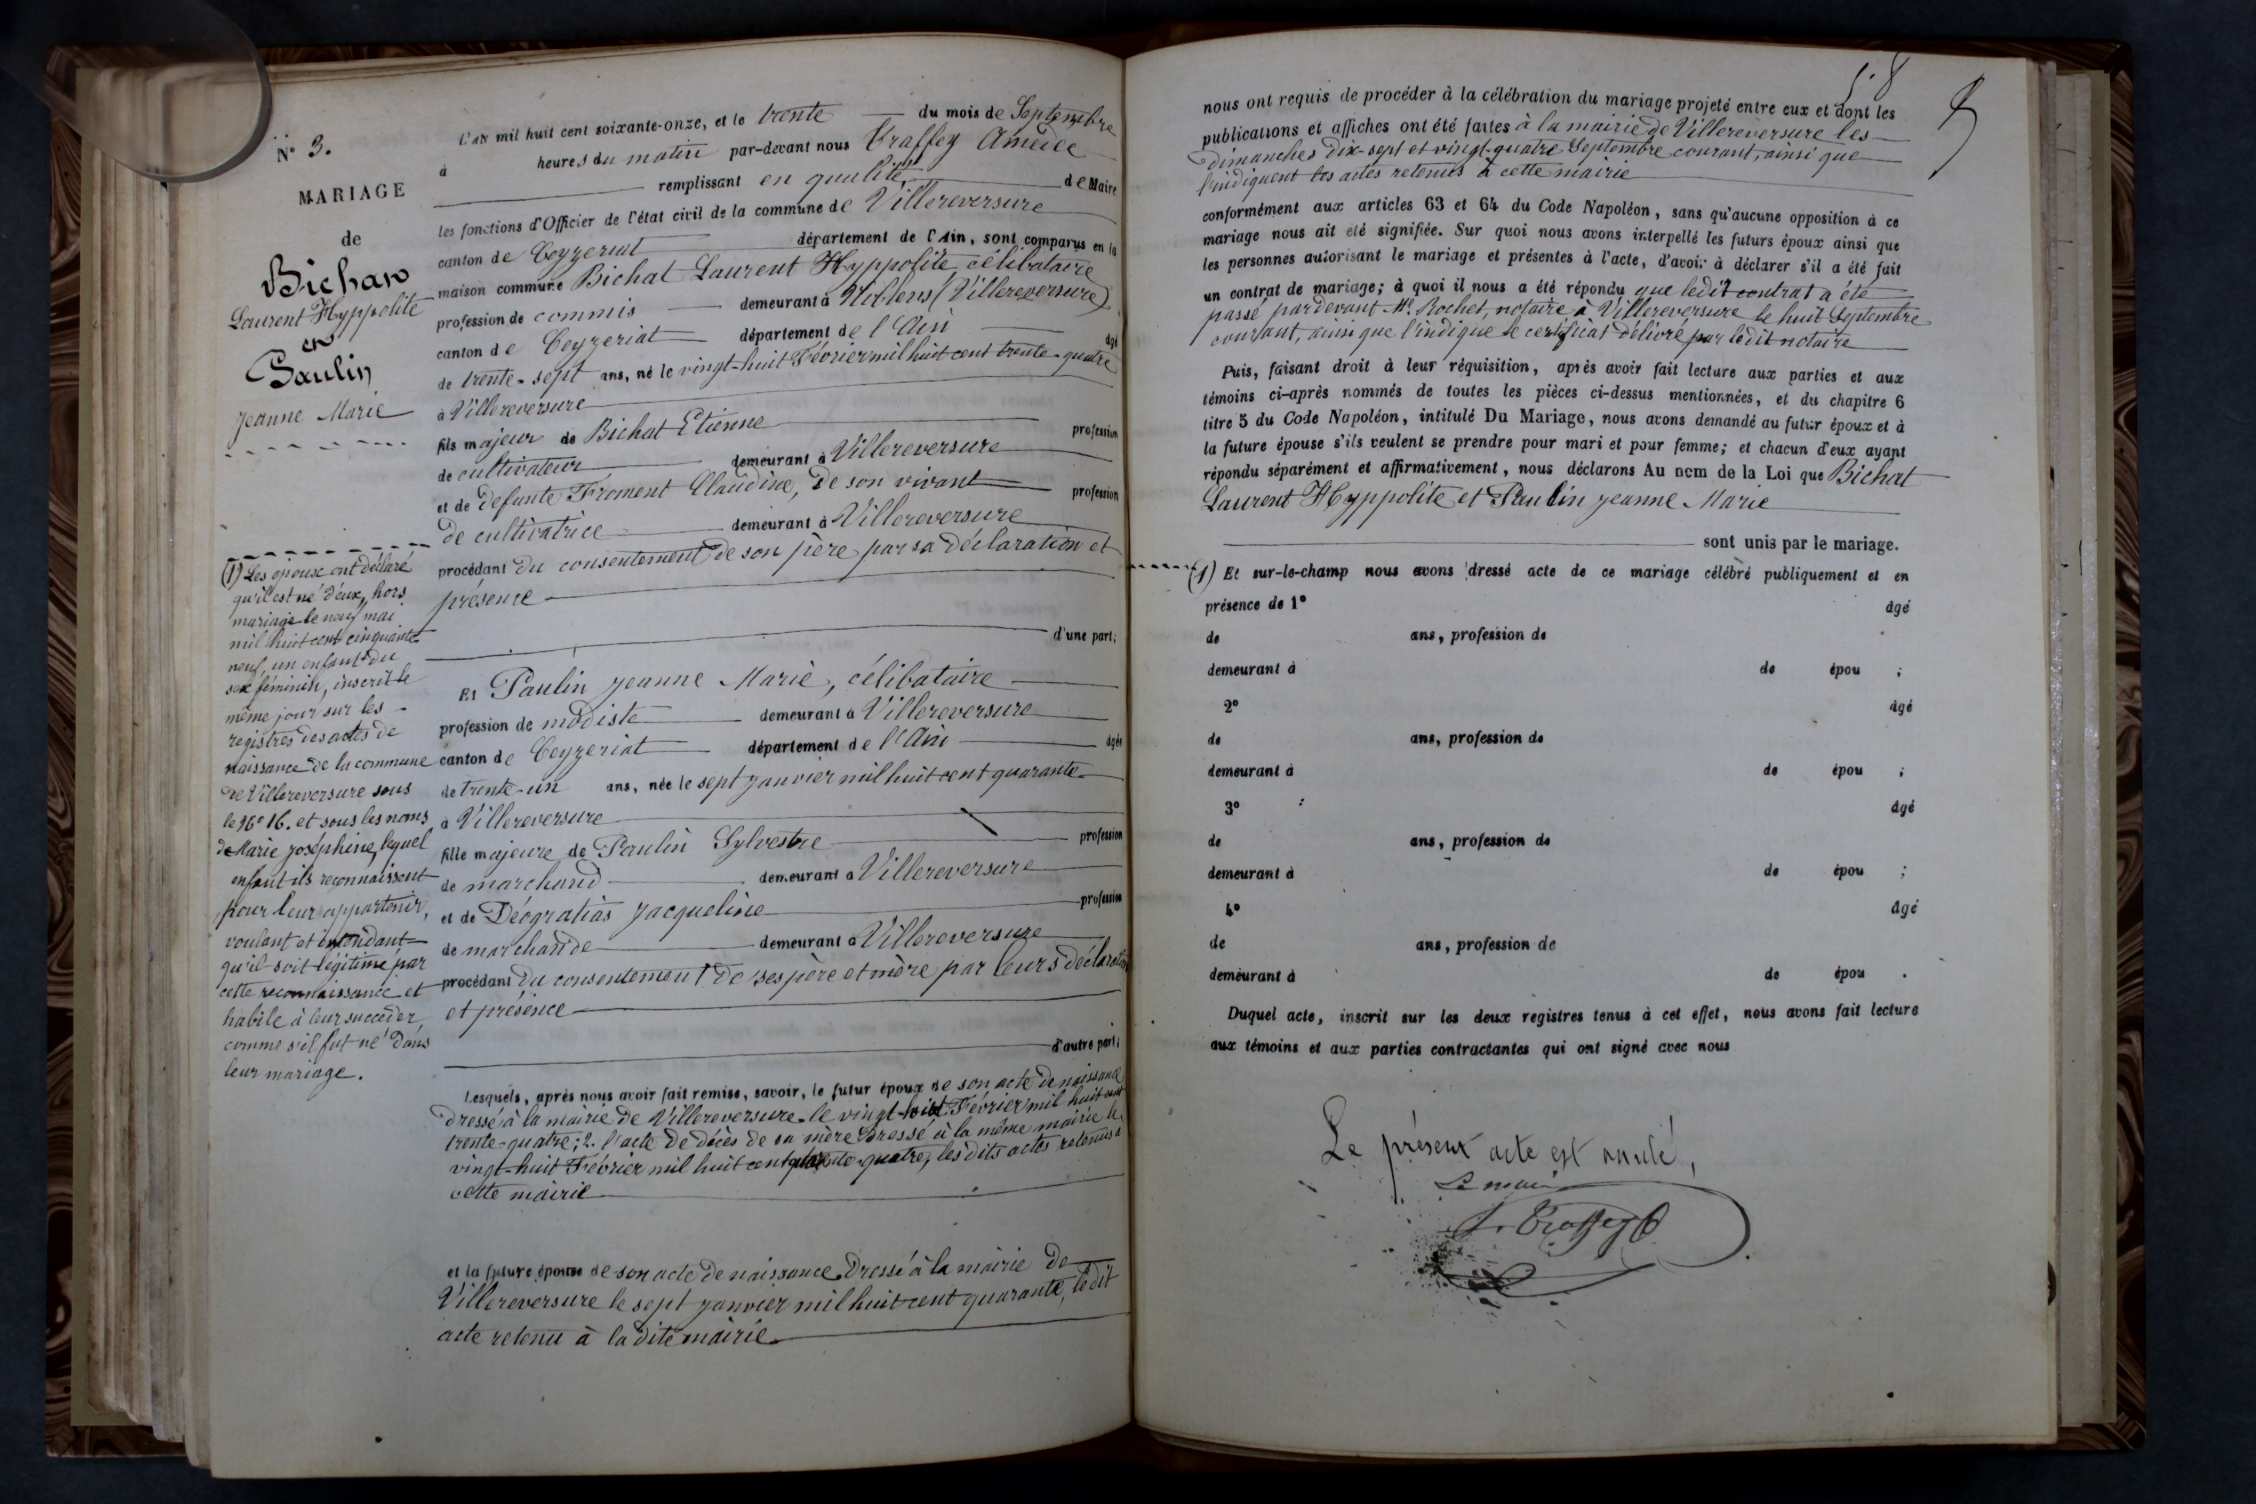 N° 3.
MARIAGE
de
Bichat
Laurent Hyppolite
et
Paulin
Jeanne Marie
(1) Les époux ont déclaré
qu'il est né d'eux, hors
mariage le neuf mai
mil huit cent cinquante
neuf, un enfant du
sexe féminin, inscrit le
même jour sur les
registres des actes de
naissance de la commune
de Villereversure sous
le N° 16. et sous les noms
de Marie Joséphine, lequel
enfant ils reconnaissent
pour leur appartenir,
voulant et entendant
qu'il soit légitimé par
cette reconnaissance et
habile à leur succéder
comme s'il fut né dans
leur mariage.
L'an mil huit cent soixante-onze, et le trente du mois de Septembre
à heures du matin par-devant nous Traffey Amédée
remplissant en qualité de Maire
les fonctions d'Officier de l'état civil de la commune de Villereversure
canton de Ceyzeriat département de l'Ain, sont comparus en la
maison commune Bichat Laurent Hyppolite, célibataire
profession de commis demeurant à Noblens (Villereversure)
canton de Ceyzeriat département de l'Ain âgé
de trente-sept ans, né le vingt-huit Février mil huit cent trente-quatre
à Villereversure
fils majeur de Bichat Etienne profession
de cultivateur demeurant à Villereversure
et de defunte Froment Claudine, de son vivant profession
de cultivatrice demeurant à Villereversure
procédant du consentement de son père par sa déclaration et
présence
d'une part;
Et Paulin Jeanne Marie, célibataire
profession de modiste demeurant à Villereversure
canton de Ceyzeriat département de l'Ain âgée
de trente-un ans, née le sept janvier mil huit cent quarante
à Villereversure
fille majeure de Paulin Sylvestre profession
de marchand demeurant à Villereversure
et de Déogratias Jacqueline profession
de marchande demeurant à Villereversure
procédant du consentement de ses père et mère par leurs déclaration
et présence
d'autre part;
Lesquels, après nous avoir fait remise, savoir, le futur époux de son acte de naissance
dressé à la mairie de Villereversure le vingt-huit Février mil huit cent
trente-quatre; 2. l'acte de décès de sa mère dressé à la même mairie le
vingt-huit Février mil huit cent quatre, les dits actes retenus à
cette mairie
et la future épouse de son acte de naissance dressé à la mairie de
Villereversure le sept janvier mil huit cent quarante, ledit
acte retenu à la dite mairie
nous ont requis de procéder à la célébration du mariage projeté entre eux et dont les
publications et affiches ont été faites à la mairie de Villereversure les
dimanches dix-sept et vingt-quatre Septembre courant, ainsi que
l'indiquent les actes retenus à cette mairie
conformément aux articles 63 et 64 du Code Napoléon, sans qu'aucune opposition à ce
mariage nous ait été signifiée. Sur quoi nous avons interpellé les futurs époux ainsi que
les personnes autorisant le mariage et présentes à l'acte, d'avoir à déclarer s'il a été fait
un contrat de mariage; à quoi il nous a été répondu que ledit contrat a été
passé pardevant Me Rochet, notaire à Villereversure le huit Septembre
courant, ainsi que l'indique le certificat délivré par ledit notaire
Puis, faisant droit à leur réquisition, après avoir fait lecture aux parties et aux
témoins ci-après nommés de toutes les pièces ci-dessus mentionnées, et du chapitre 6
titre 5 du Code Napoléon, intitulé Du Mariage, nous avons demandé au futur époux et à
la future épouse s'ils veulent se prendre pour mari et pour femme; et chacun d'eux ayant
répondu séparément et affirmativement, nous déclarons Au nom de la Loi que Bichat
Laurent Hyppolite et Paulin Jeanne Marie
sont unis par le mariage.
(1) Et sur-le-champ nous avons dressé acte de ce mariage célébré publiquement et en
présence de 1° âgé
de ans, profession de
demeurant à de épou ;
2° âgé
de ans, profession de
demeurant à de épou ;
3° âgé
de ans, profession de
demeurant à de épou ;
4° âgé
de ans, profession de
demeurant à de épou .
Duquel acte, inscrit sur les deux registres tenus à cet effet, nous avons fait lecture
aux témoins et aux parties contractantes qui ont signé avec nous
Le présent acte est annulé,
Le maire
Traffey